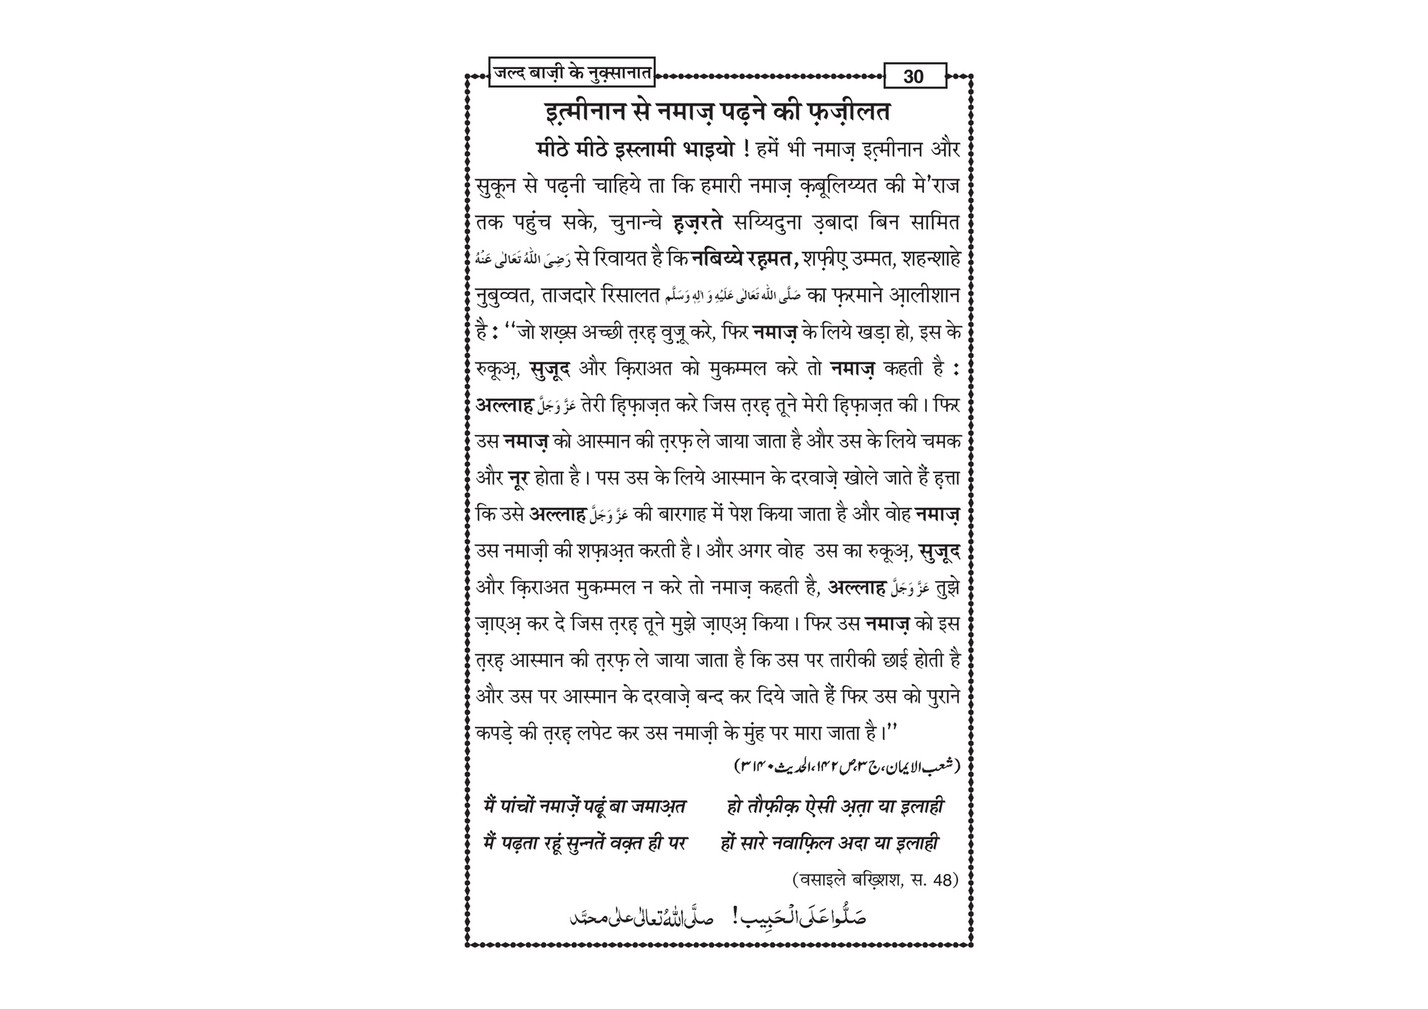 जल्द बाज़ी के नुक़्सानात
30
इत़्मीनान से नमाज़ पढ़ने की फ़ज़ीलत
मीठे मीठे इस्लामी भाइयो ! हमें भी नमाज़ इत़्मीनान और
सुकून से पढ़नी चाहिये ता कि हमारी नमाज़ क़बूलिय्यत की मे'राज
तक पहुंच सके, चुनान्चे ह़ज़रते सय्यिदुना उ़बादा बिन सामित
رَضِیَ اللّٰہُ تَعَالٰی عَنْہُ से रिवायत है कि नबिय्ये रह़मत, शफ़ीए़ उम्मत, शहन्शाहे
नुबुव्वत, ताजदारे रिसालत صَلَّی اللّٰہ تَعَالٰی عَلَیْہِ وَ اٰلِہٖ وَسَلَّم का फ़रमाने आ़लीशान
है : ‘‘जो शख़्स अच्छी त़रह़ वुज़ू करे, फिर नमाज़ के लिये खड़ा हो, इस के
रुकूअ़, सुजूद और क़िराअत को मुकम्मल करे तो नमाज़ कहती है :
अल्लाह عَزَّ وَجَلَّ तेरी ह़िफ़ाज़त करे जिस त़रह़ तूने मेरी ह़िफ़ाज़त की। फिर
उस नमाज़ को आस्मान की त़रफ़ ले जाया जाता है और उस के लिये चमक
और नूर होता है। पस उस के लिये आस्मान के दरवाज़े खोले जाते हैं ह़त्ता
कि उसे अल्लाह عَزَّ وَجَلَّ की बारगाह में पेश किया जाता है और वोह नमाज़
उस नमाज़ी की शफ़ाअ़त करती है। और अगर वोह उस का रुकूअ़, सुजूद
और क़िराअत मुकम्मल न करे तो नमाज़ कहती है, अल्लाह عَزَّ وَجَلَّ तुझे
ज़ाएअ़ कर दे जिस त़रह़ तूने मुझे ज़ाएअ़ किया। फिर उस नमाज़ को इस
त़रह़ आस्मान की त़रफ़ ले जाया जाता है कि उस पर तारीकी छाई होती है
और उस पर आस्मान के दरवाज़े बन्द कर दिये जाते हैं फिर उस को पुराने
कपड़े की त़रह़ लपेट कर उस नमाज़ी के मुंह पर मारा जाता है।’’
(شعب الایمان، ج۳، ص۱۴۲، الحدیث۳۱۴۰)
मैं पांचों नमाज़ें पढूं बा जमाअ़त हो तौफ़ीक़ ऐसी अ़त़ा या इलाही
मैं पढ़ता रहूं सुन्नतें वक़्त ही पर हों सारे नवाफ़िल अदा या इलाही
(वसाइले बख़्शिश, स. 48)
صَلُّوا عَلَی الْحَبِیب ! صلَّی اللّٰہُ تعالٰی علٰی محمَّد